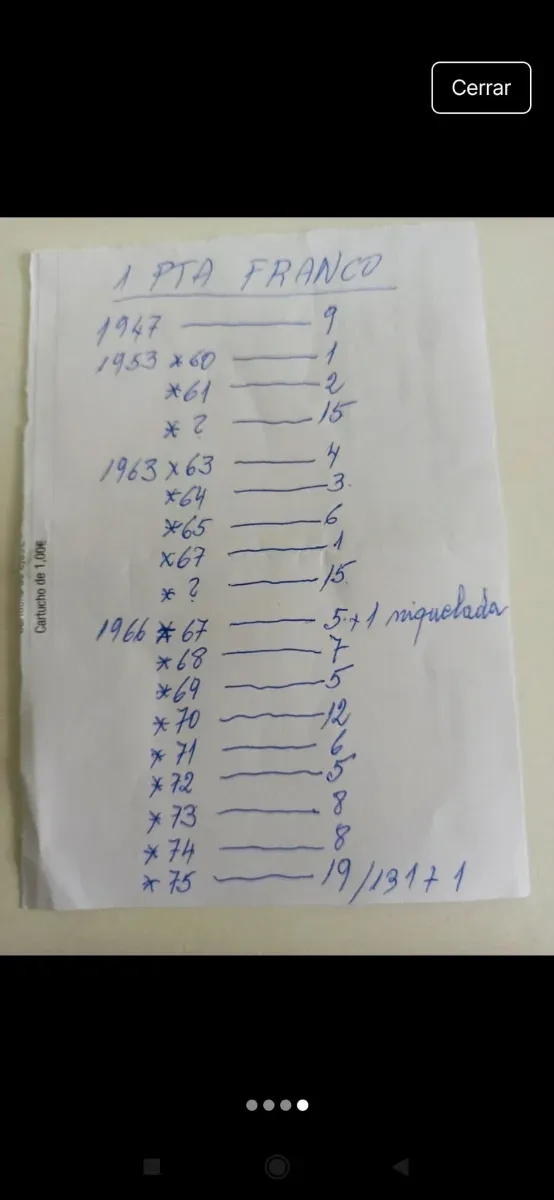 Cerrar
1 PTA FRANCO
1947 — 9
1953 *60 — 1
*61 — 2
* ? — 15
1963 *63 — 4
*64 — 3.
*65 — 6
*67 — 1
* ? — 15.
1966 *67 — 5.+1 niquelada
*68 — 7
*69 — 5
*70 — 12
*71 — 6
*72 — 5
*73 — 8
*74 — 8
*75 — 19/131+1
Cartucho de 1,00€